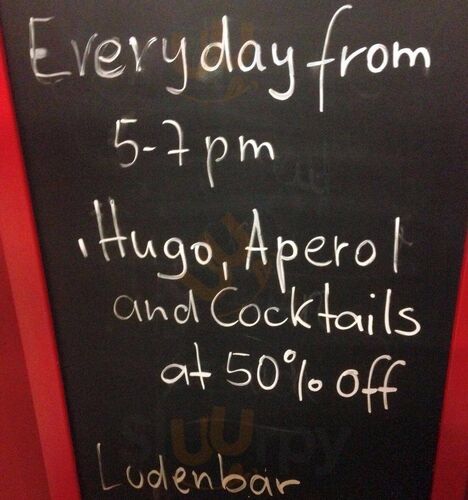 Everyday from
5-7pm
Hugo, Aperol
and Cocktails
at 50% off
Ludenbar
sluurpy